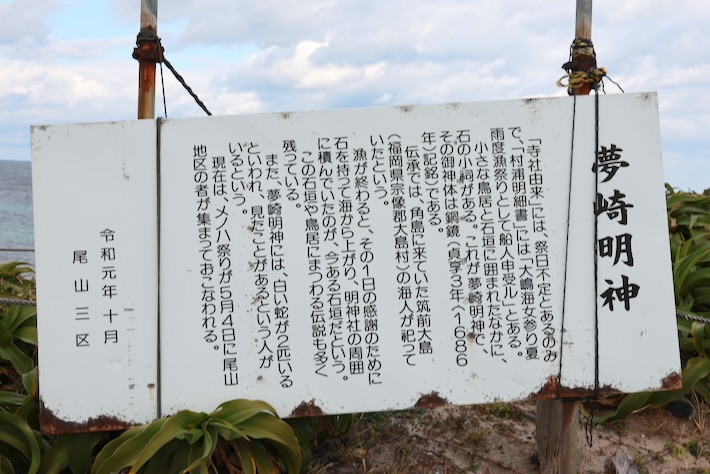 夢崎明神
「寺社由来」には、祭日不定とあるのみ
で、「村浦明細書」には「大嶋海女参り夏
雨度漁祭りとして船人申受ル」とある。
小さな鳥居と石垣に囲まれたなかに、
石の小祠がある。これが夢崎明神で、
その御神体は銅鏡（貞享3年〈1686
年〉記銘）である。
伝承では、角島に来ていた筑前大島
（福岡県宗像郡大島村）の海人が祀って
いたという。
漁が終わると、その1日の感謝のために
石を持って海から上がり、明神社の周囲
に積んでいたのが、今ある石垣だという。
この石垣や鳥居にまつわる伝説も多く
残っている。
また、夢崎明神には、白い蛇が2匹いる
といわれ、見たことがあるという人が
いるという。
現在は、メノハ祭りが5月4日に尾山
地区の者が集まっておこなわれる。
令和元年十月
尾山三区